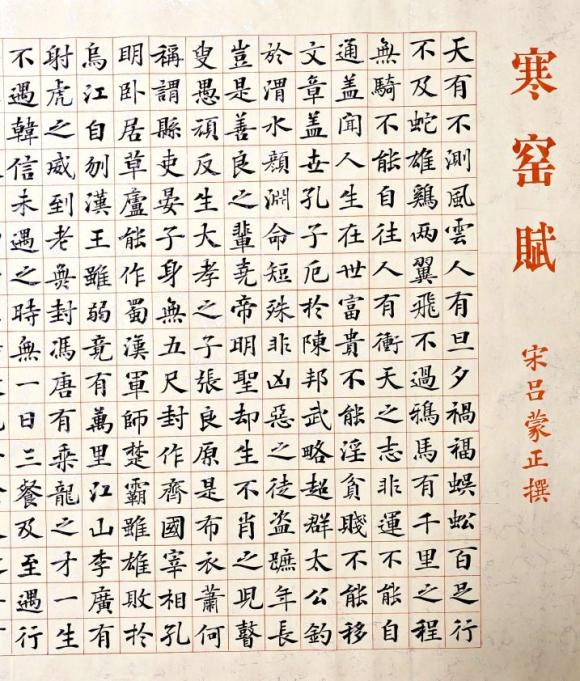 寒窑賦
宋吕蒙正撰
天有不測風雲人有旦夕禍福蜈蚣百足行
不及蛇雄鷄兩翼飛不過鴉馬有千里之程
無騎不能自往人有衝天之志非運不能自
通盖聞人生在世富貴不能淫貧賤不能移
文章盖世孔子厄於陳邦武略超群太公釣
於渭水顔淵命短殊非凶惡之徒盗蹠年長
豈是善良之輩堯帝明聖却生不肖之児瞽
叟愚頑反生大孝之子張良原是布衣蕭何
稱謂縣吏晏子身無五尺封作齊國宰相孔
明卧居草廬能作蜀漢軍師楚霸雖雄敗扵
烏江自刎漢王雖弱竟有萬里江山李廣有
射虎之威到老無封馮唐有乘龍之才一生
不遇韓信未遇之時無一日三餐及至遇行